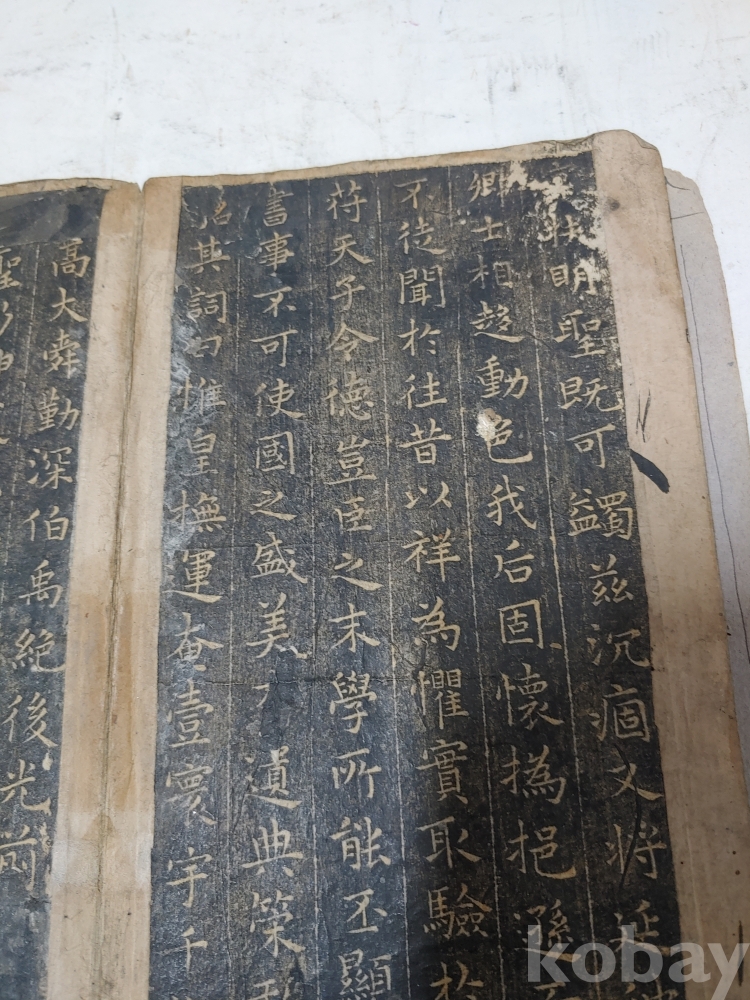 扶明聖既可蠲茲沉痼又將延
卿士相趍動色我后固懷撝挹
不徒聞於往昔以祥為懼實取驗於
苻天子令德豈臣之末學所能丕顯
書事不可使國之盛美有遺典策
銘其詞曰惟皇撫運奄壹寰宇千
高大舜勤深伯禹絕後光前
聖
kobay